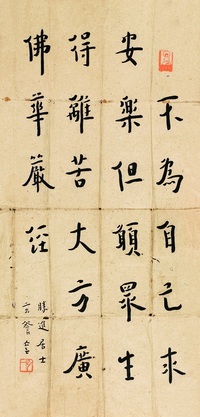 不為自己求
安樂但願眾生
得離苦大方廣
佛華嚴經
勝進居士